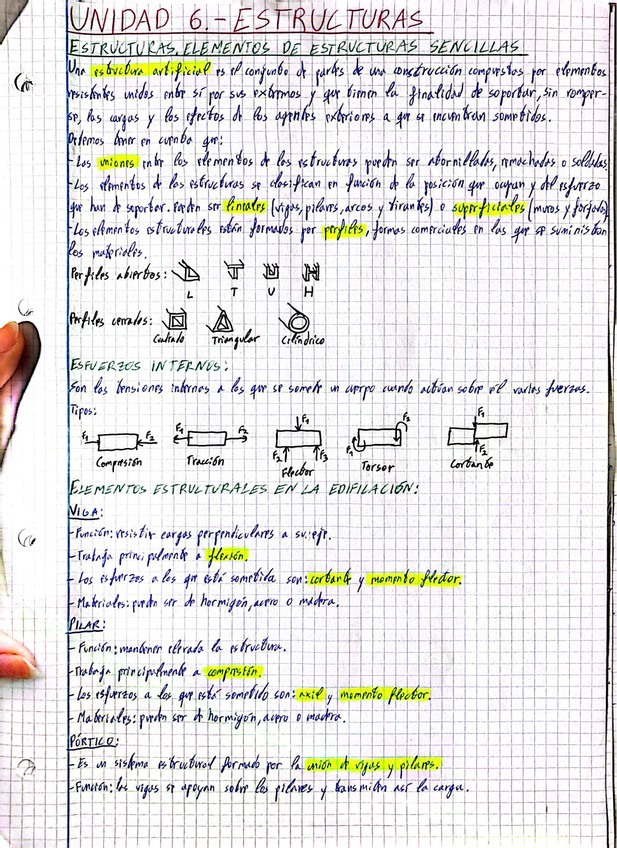 UNIDAD 6.-ESTRUCTURAS
ESTRUCTURAS. ELEMENTOS DE ESTRUCTURAS SENCILLAS
Una estructura artificial es el conjunto de partes de una construcción compuestas por elementos
resistentes unidos entre sí por sus extremos y que tienen la finalidad de soportar, sin romper-
se, las cargas y los efectos de los agentes exteriores a que se encuentran sometidos.
Debemos tener en cuenta que:
- Las uniones entre los elementos de las estructuras pueden ser atornilladas, remachadas o soldadas.
- Los elementos de las estructuras se clasifican en función de la posición que ocupan y del esfuerzo
que han de soportar. Pueden ser lineales (vigas, pilares, arcos y tirantes) o superficiales (muros y forjados)
- Los elementos estructurales están formados por perfiles, formas comerciales en las que se suministran
los materiales.
Perfiles abiertos:
L T U H
Perfiles cerrados:
Cuadrado Triangular Cilíndrico
ESFUERZOS INTERNOS:
Son las tensiones internas a las que se somete un cuerpo cuando actúan sobre él varias fuerzas.
Tipos:
F1 F2 F1 F2 F1 F2 F3 F1 F2 F1 F2
Compresión Tracción Flector Torsor Cortante
ELEMENTOS ESTRUCTURALES EN LA EDIFILACIÓN:
VIGA:
- Función: resistir cargas perpendiculares a su eje.
- Trabaja principalmente a flexión.
- Los esfuerzos a los que está sometida son: cortante y momento flector.
- Materiales: pueden ser de hormigón, acero o madera.
PILAR:
- Función: mantener elevada la estructura.
- Trabaja principalmente a compresión.
- Los esfuerzos a los que está sometido son: axil y momento flector.
- Materiales: pueden ser de hormigón, acero o madera.
PÓRTICO:
- Es un sistema estructural formado por la unión de vigas y pilares.
- Función: las vigas se apoyan sobre los pilares y transmiten así la carga.